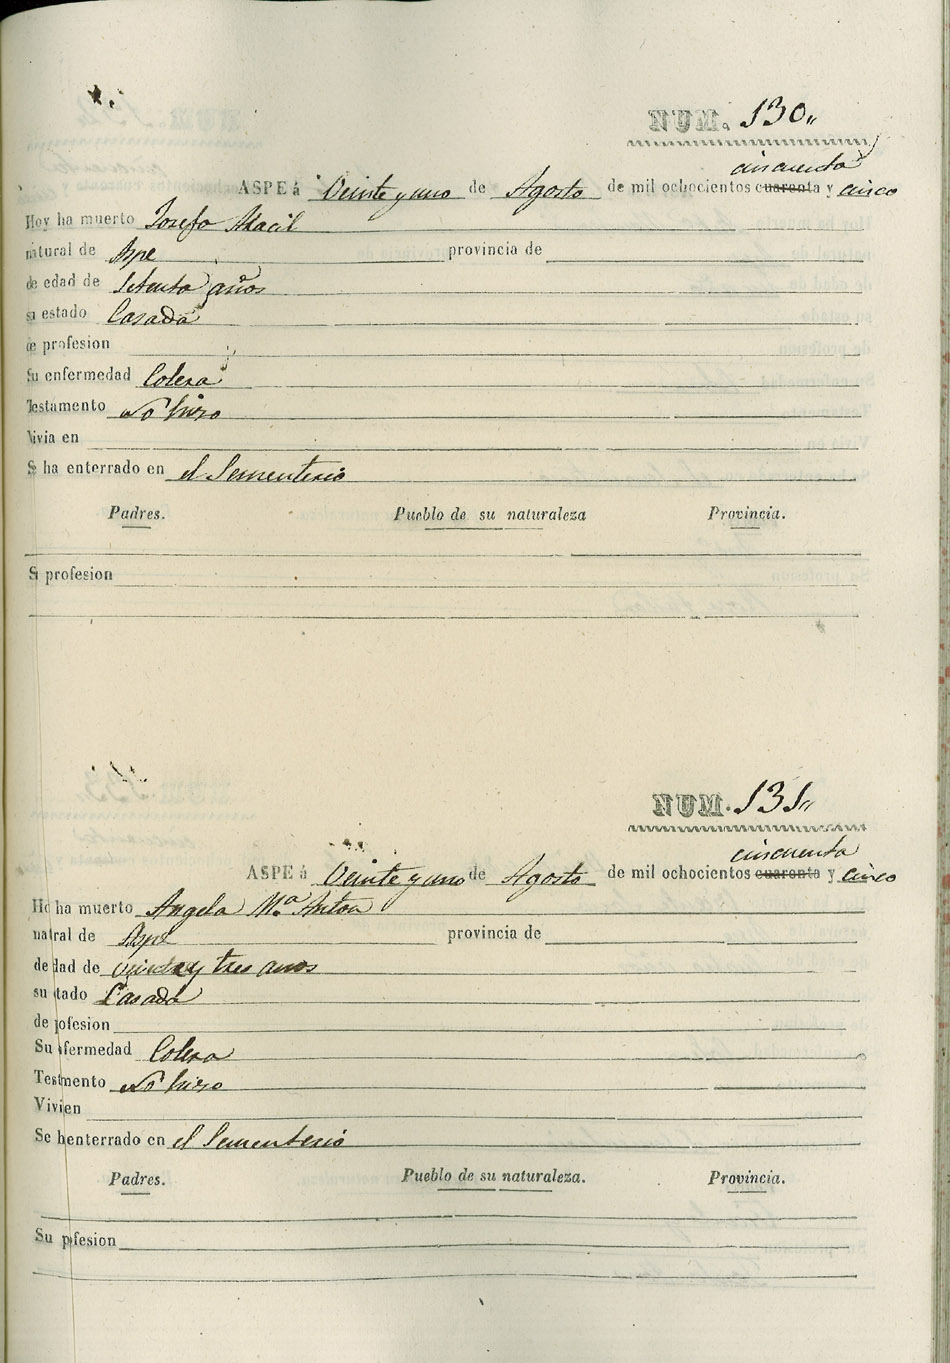 NUM. 130
cincuenta
ASPE á Veinte y uno de Agosto de mil ochocientos cuarenta y cinco
Hoy ha muerto Josefa
natural de Aspe provincia de
de edad de Setenta años
su estado Casada
de profesion
Su enfermedad Colera
Testamento No hizo
Vivia en
Se ha enterrado en el Sementerio
Padres. Pueblo de su naturaleza Provincia.
Su profesion
NUM. 131
cincuenta
ASPE á Veinte y uno de Agosto de mil ochocientos cuarenta y cinco
Ho ha muerto Angela Mª Anton
natral de Aspe provincia de
de dad de veinte y tres anos
su tado Casada
de pofesion
Su nfermedad Colera
Testmento No hizo
Vivien
Se henterrado en el Sementerio
Padres. Pueblo de su naturaleza. Provincia.
Su pfesion